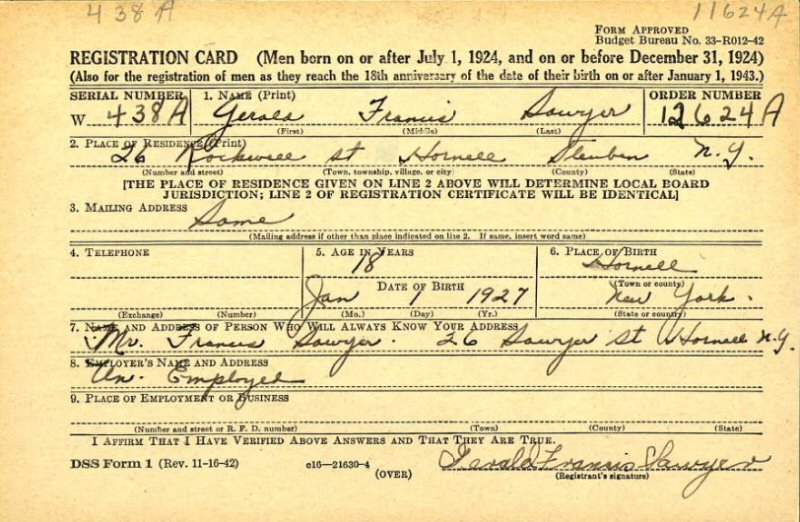 438A 11624A
FORM APPROVED
Budget Bureau No. 33-R012-42
REGISTRATION CARD (Men born on or after July 1, 1924, and on or before December 31, 1924)
(Also for the registration of men as they reach the 18th anniversary of the date of their birth on or after January 1, 1943.)
SERIAL NUMBER 1. NAME (Print) ORDER NUMBER
W 438A Gerald Francis Sawyer 12624A
(First) (Middle) (Last)
2. PLACE OF RESIDENCE (Print)
26 Rockwell St Hornell Steuben N.Y.
(Number and street) (Town, township, village, or city) (County) (State)
[THE PLACE OF RESIDENCE GIVEN ON LINE 2 ABOVE WILL DETERMINE LOCAL BOARD
JURISDICTION; LINE 2 OF REGISTRATION CERTIFICATE WILL BE IDENTICAL]
3. MAILING ADDRESS
Same
(Mailing address if other than place indicated on line 2. If same, insert word same)
4. TELEPHONE 5. AGE IN YEARS 6. PLACE OF BIRTH
18 Hornell
DATE OF BIRTH (Town or county)
Jan 1 1927 New York.
(Exchange) (Number) (Mo.) (Day) (Yr.) (State or country)
7. NAME AND ADDRESS OF PERSON WHO WILL ALWAYS KNOW YOUR ADDRESS
Mr. Francis Sawyer. 26 Sawyer St Hornell N.Y.
8. EMPLOYER'S NAME AND ADDRESS
Un. Employed
9. PLACE OF EMPLOYMENT OR BUSINESS
(Number and street or R. F. D. number) (Town) (County) (State)
I AFFIRM THAT I HAVE VERIFIED ABOVE ANSWERS AND THAT THEY ARE TRUE.
DSS Form 1 (Rev. 11-16-42) c16—21630-4 Gerald Francis Sawyer
(OVER) (Registrant's signature)